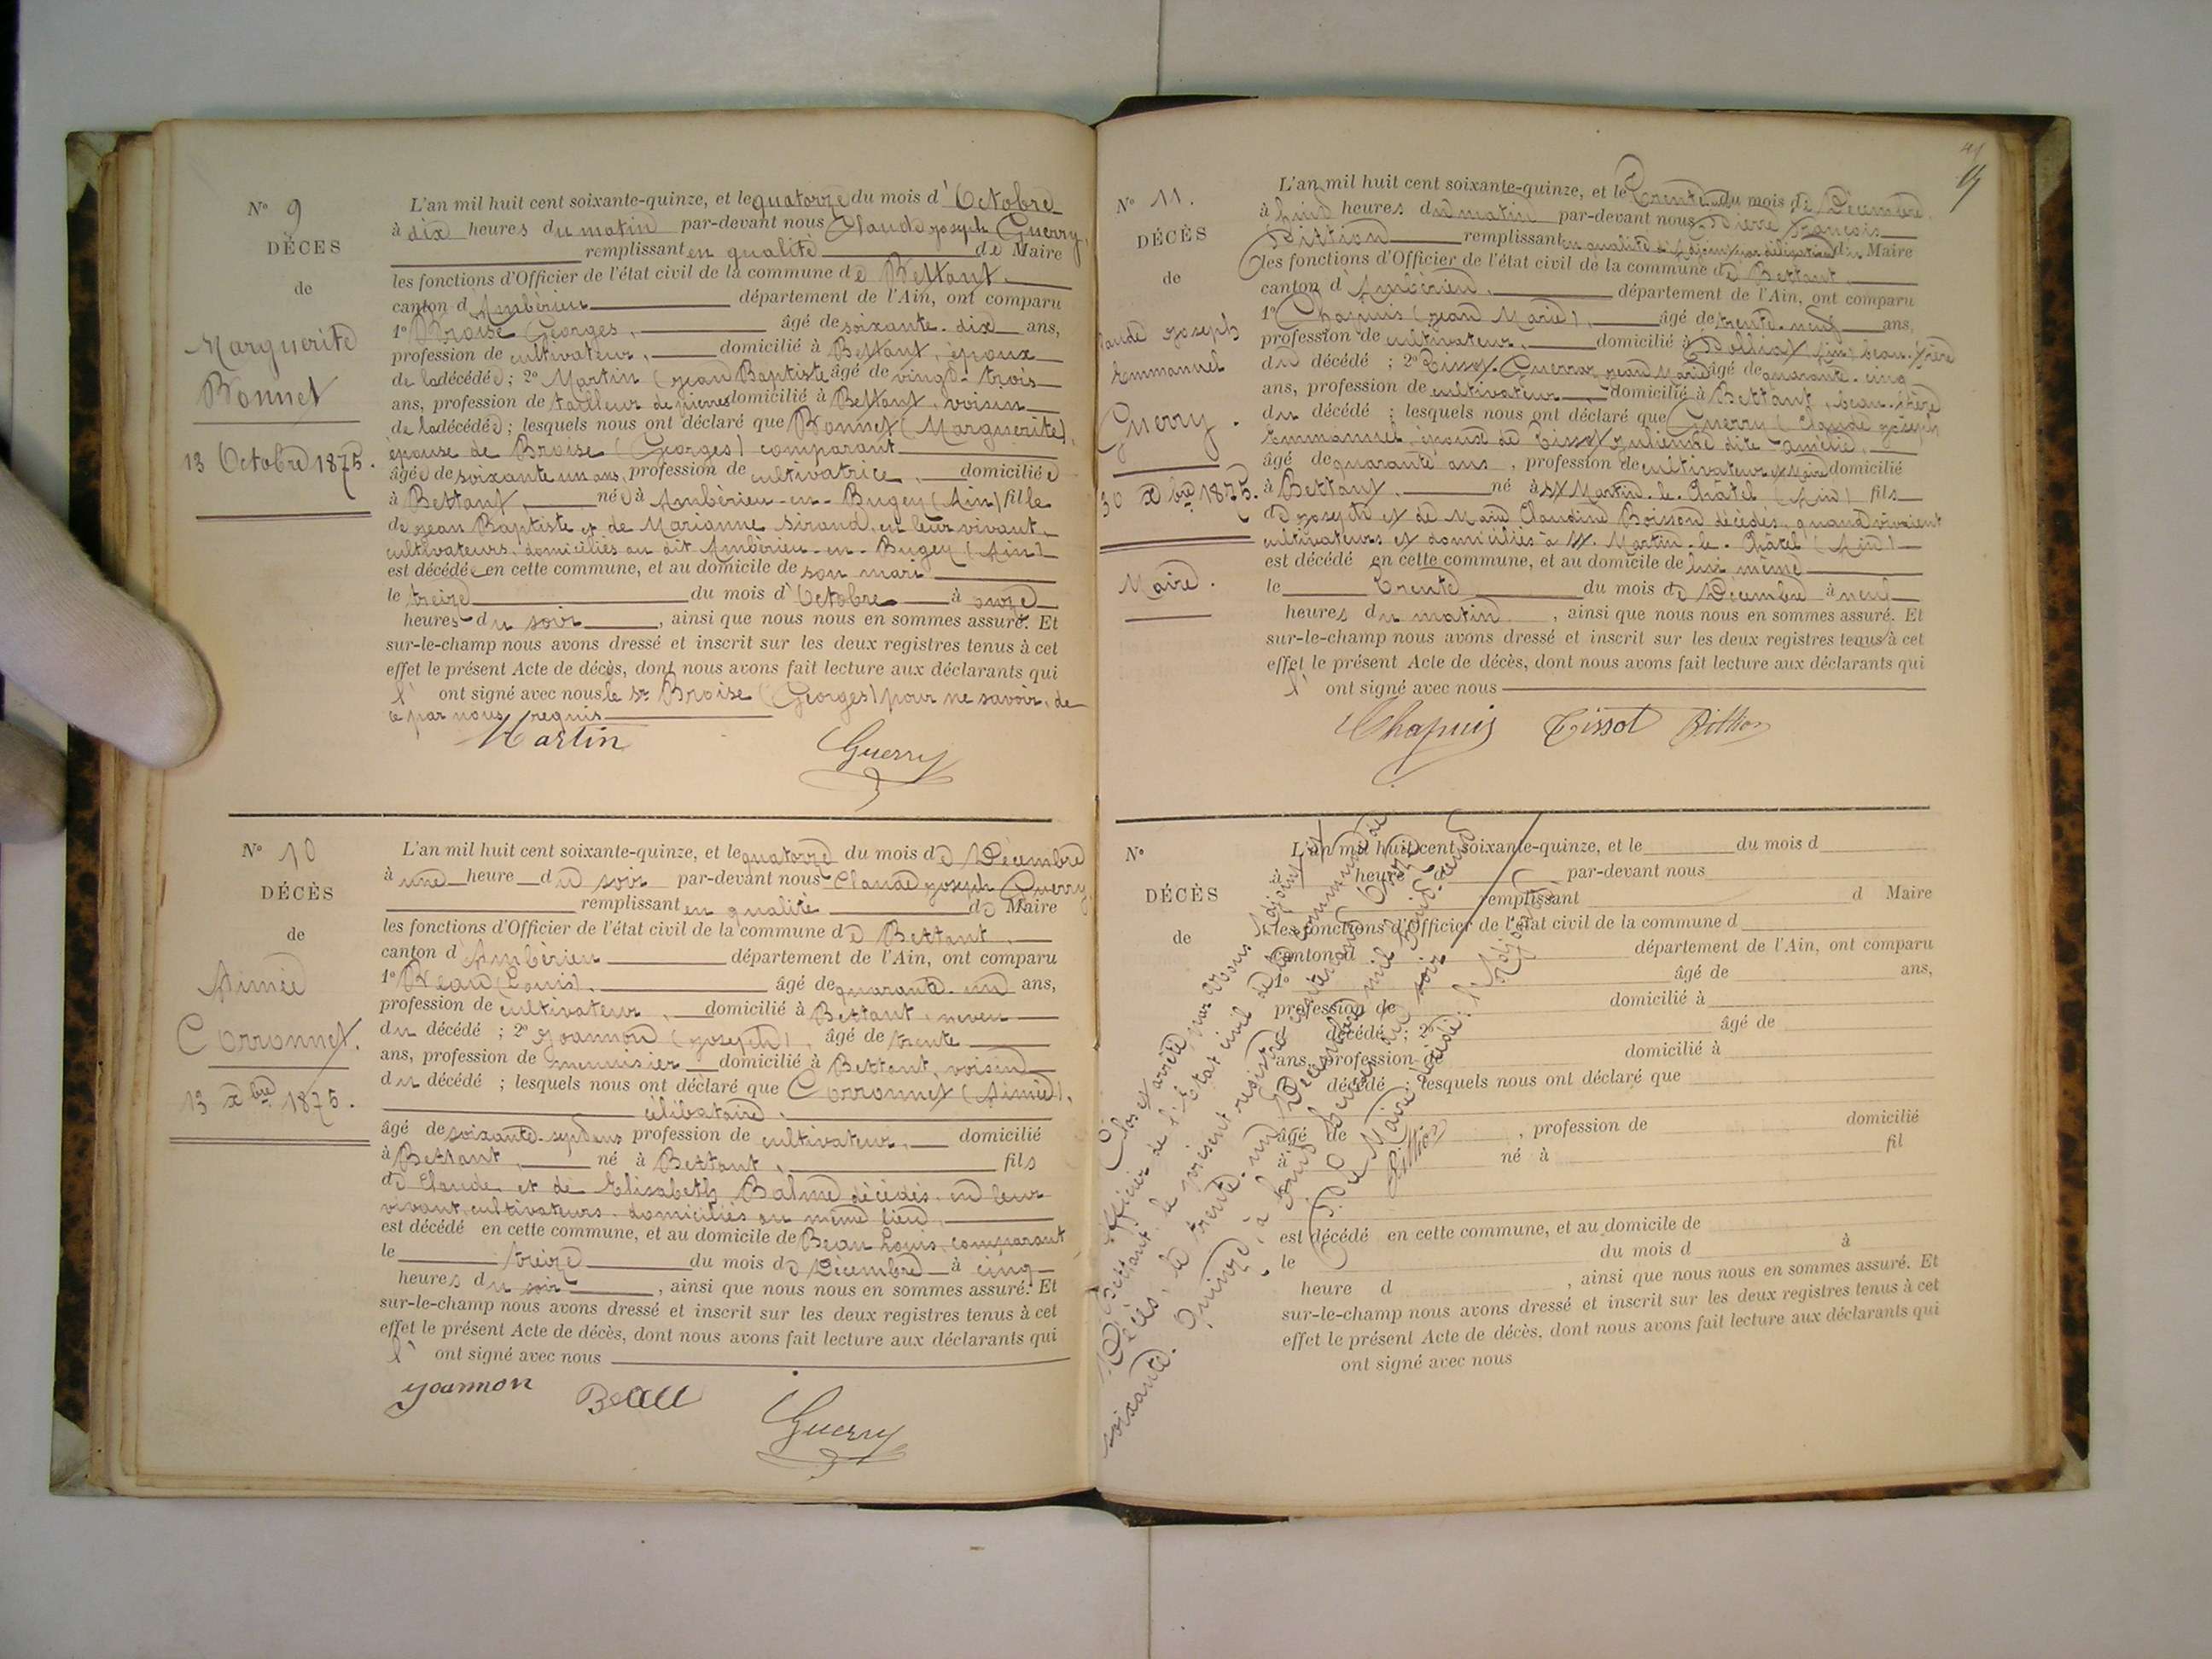 Nº 9
DÉCES
de
Marguerite
Bonnet
13 Octobre 1875.
L'an mil huit cent soixante-quinze, et le quatorze du mois d'Octobre
à dix heures du matin par-devant nous Claude Joseph Guerry,
remplissant en qualité de Maire
les fonctions d'Officier de l'état civil de la commune de Bettant.
canton d'Ambérieu département de l'Ain, ont comparu
1º Broise Georges, âgé de soixante-dix ans,
profession de cultivateur, domicilié à Bettant, époux
de la décédée ; 2º Martin (Jean Baptiste âgé de vingt-trois
ans, profession de tailleur de pierres domicilié à Bettant, voisin
de la décédée ; lesquels nous ont déclaré que Bonnet (Marguerite),
épouse de Broise (Georges) comparant
âgée de soixante un ans, profession de cultivatrice, domiciliée
à Bettant, née à Ambérieu-en-Bugey (Ain) fille
de Jean Baptiste et de Marianne Sirand, en leur vivant,
cultivateurs, domiciliés au dit Ambérieu-en-Bugey (Ain)
est décédée en cette commune, et au domicile de son mari
le treize du mois d'Octobre à onze
heures du soir, ainsi que nous nous en sommes assuré. Et
sur-le-champ nous avons dressé et inscrit sur les deux registres tenus à cet
effet le présent Acte de décès, dont nous avons fait lecture aux déclarants qui
l' ont signé avec nous, le Sr Broise (Georges) pour ne savoir, de
ce par nous requis
Martin Guerry
Nº 10
DÉCÈS
de
Aimée
Corronnet.
13 xbre 1875.
L'an mil huit cent soixante-quinze, et le quatorze du mois de Décembre
à une heure du soir par-devant nous Claude Joseph Guerry,
remplissant en qualité de Maire
les fonctions d'Officier de l'état civil de la commune de Bettant,
canton d'Ambérieu département de l'Ain, ont comparu
1º Beau (Louis), âgé de quarante-un ans,
profession de cultivateur, domicilié à Bettant, neveu
du décédé ; 2º Joannon (Joseph), âgé de trente
ans, profession de menuisier domicilié à Bettant, voisin
du décédé ; lesquels nous ont déclaré que Corronnet (Aimée),
célibataire,
âgé de soixante-sept ans profession de cultivateur, domicilié
à Bettant, né à Bettant, fils
de Claude et de Elisabeth Balme décédés, en leur
vivant, cultivateurs, domiciliés au même lieu,
est décédé en cette commune, et au domicile de Beau Louis, comparant
le treize du mois de Décembre à cinq
heures du soir, ainsi que nous nous en sommes assuré. Et
sur-le-champ nous avons dressé et inscrit sur les deux registres tenus à cet
effet le présent Acte de décès, dont nous avons fait lecture aux déclarants qui
l' ont signé avec nous
Joannon Beau Guerry
Nº 11.
DÉCÈS
de
Claude Joseph
Emmanuel
Guerry.
30 xbre 1875.
Maire.
L'an mil huit cent soixante-quinze, et le trente du mois de Décembre
à heures du matin par-devant nous Pierre François
Pittion remplissant en qualité d'Adjoint par délégation du Maire
les fonctions d'Officier de l'état civil de la commune de Bettant
canton d'Ambérieu, département de l'Ain, ont comparu
1º Chapuis (Jean Marie), âgé de trente-neuf ans,
profession de cultivateur, domicilié à Polliat (Ain) beau-frère
du décédé ; 2º Tissot-Guerraz Jean Marie âgé de quarante-cinq
ans, profession de cultivateur, domicilié à Bettant, beau-frère
du décédé ; lesquels nous ont déclaré que Guerry (Claude Joseph
Emmanuel, époux de Tissot Julienne dite Amélie,
âgé de quarante ans, profession de cultivateur et Maire domicilié
à Bettant, né à St Martin-le-Châtel (Ain) fils
de Joseph et de Marie Claudine Boisson décédés, quand vivaient
cultivateurs et domiciliés à St Martin-le-Châtel (Ain)
est décédé en cette commune, et au domicile de lui même
le trente du mois de Décembre à neuf
heures du matin, ainsi que nous nous en sommes assuré. Et
sur-le-champ nous avons dressé et inscrit sur les deux registres tenus à cet
effet le présent Acte de décès, dont nous avons fait lecture aux déclarants qui
l' ont signé avec nous
Chapuis Tissot Pittion
Nº
DÉCÈS
de
L'an mil huit cent soixante-quinze, et le du mois d
à heure d par-devant nous
remplissant d Maire
les fonctions d'Officier de l'état civil de la commune d
canton d département de l'Ain, ont comparu
1º âgé de ans,
profession de domicilié à
décédé ; 2º âgé de
ans, profession de domicilié à
décédé ; lesquels nous ont déclaré que
âgé de , profession de domicilié
à né à fil
est décédé en cette commune, et au domicile de
le du mois d à
heure d , ainsi que nous nous en sommes assuré. Et
sur-le-champ nous avons dressé et inscrit sur les deux registres tenus à cet
effet le présent Acte de décès, dont nous avons fait lecture aux déclarants qui
ont signé avec nous
Clos et arrêté par nous Adjoint et
Officier de l'État civil de la commune de
Bettant, le présent registre contenant Onze
Décès, le trente-un Décembre mil huit cent
soixante-Quinze, à heures du soir
P. le Maire décédé, l'Adjoint
Pittion